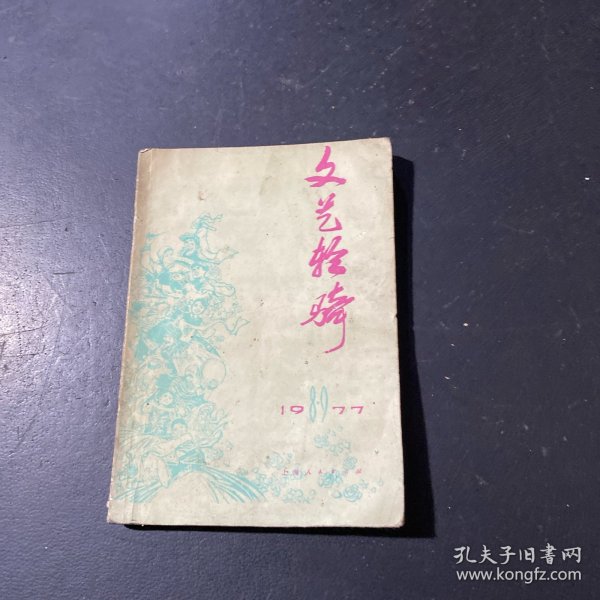 文艺轻骑
1977
89
上海人民出版社
孔夫子旧書网
www.kongfz.com